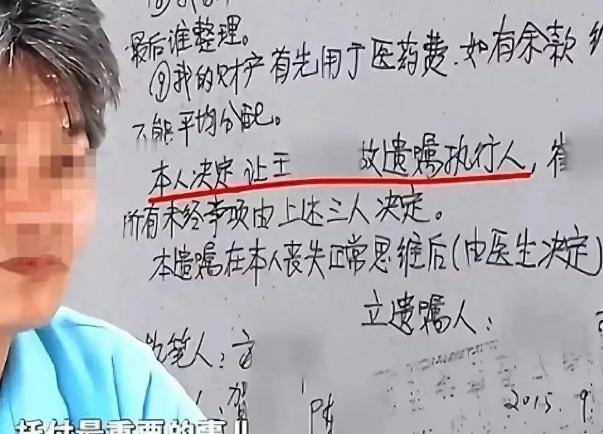 最后谁整理。
⑨我的财产首先用于医药费.如有余款
不能平均分配。
本人决定让王 故遗嘱执行人，崔
所有未经事项由上述三人决定。
本遗嘱在本人丧失正常思维后(由医生决定)
立遗嘱人：
执笔人：方
贺 陆 2015.9
托付最重要的事儿